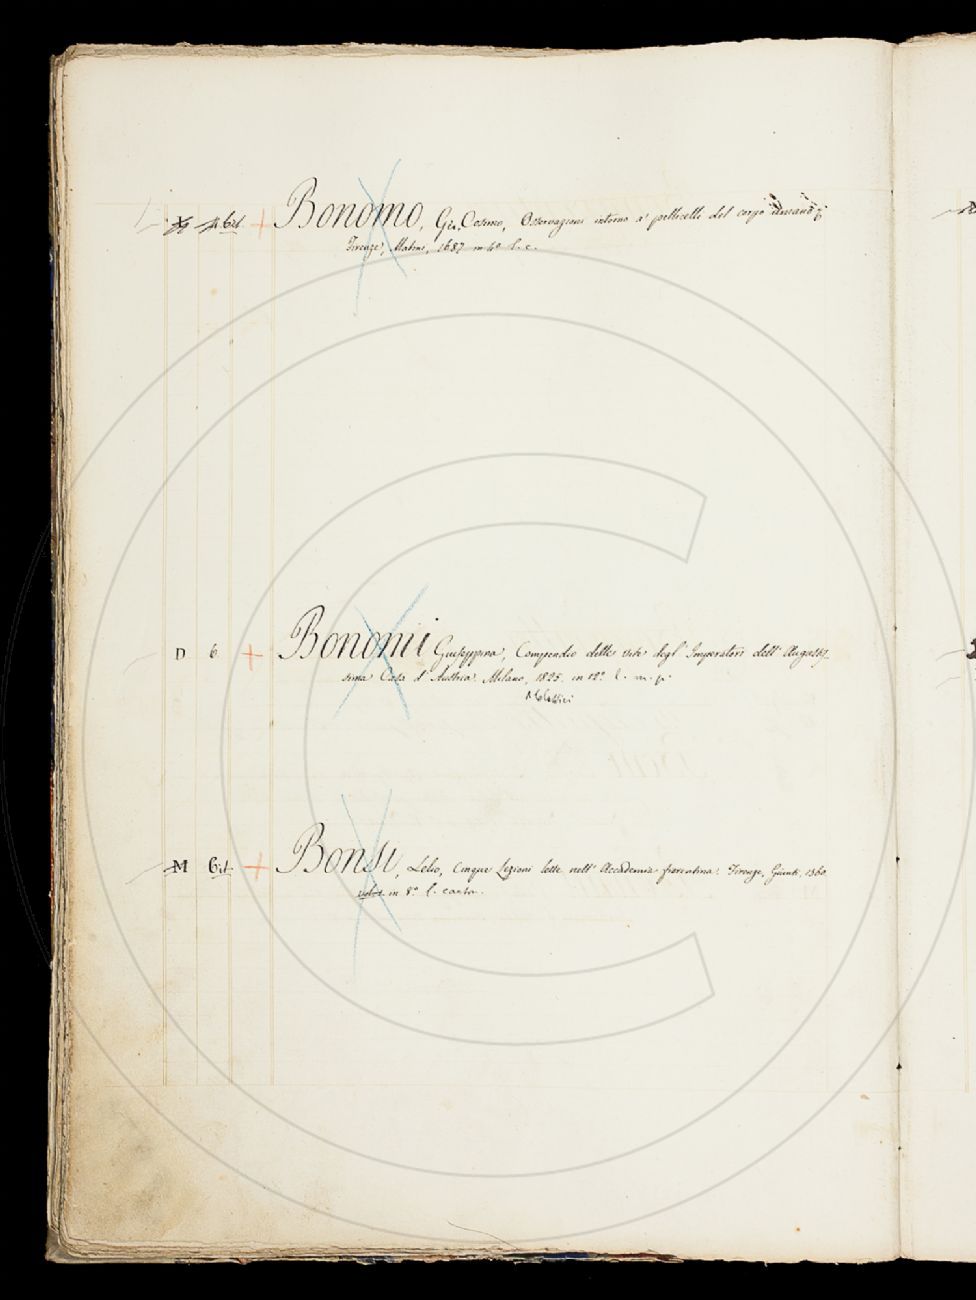 6it + Bonomo, Gio. Cosimo, Osservazioni intorno a' pellicelli del corpo umano.
Firenze, Matini, 1687 in 4.o l. c.
D 6 + Bonomi Giuseppina, Compendio delle vite degl' Imperatori dell' Augustis-
sima Casa d' Austria. Milano, 1825. in 12.o l. m. p.
M 6it + Bonsi, Lelio, Cinque Lezioni lette nell' Accademia fiorentina. Firenze, Giunti, 1560
in 8.o l. carta.